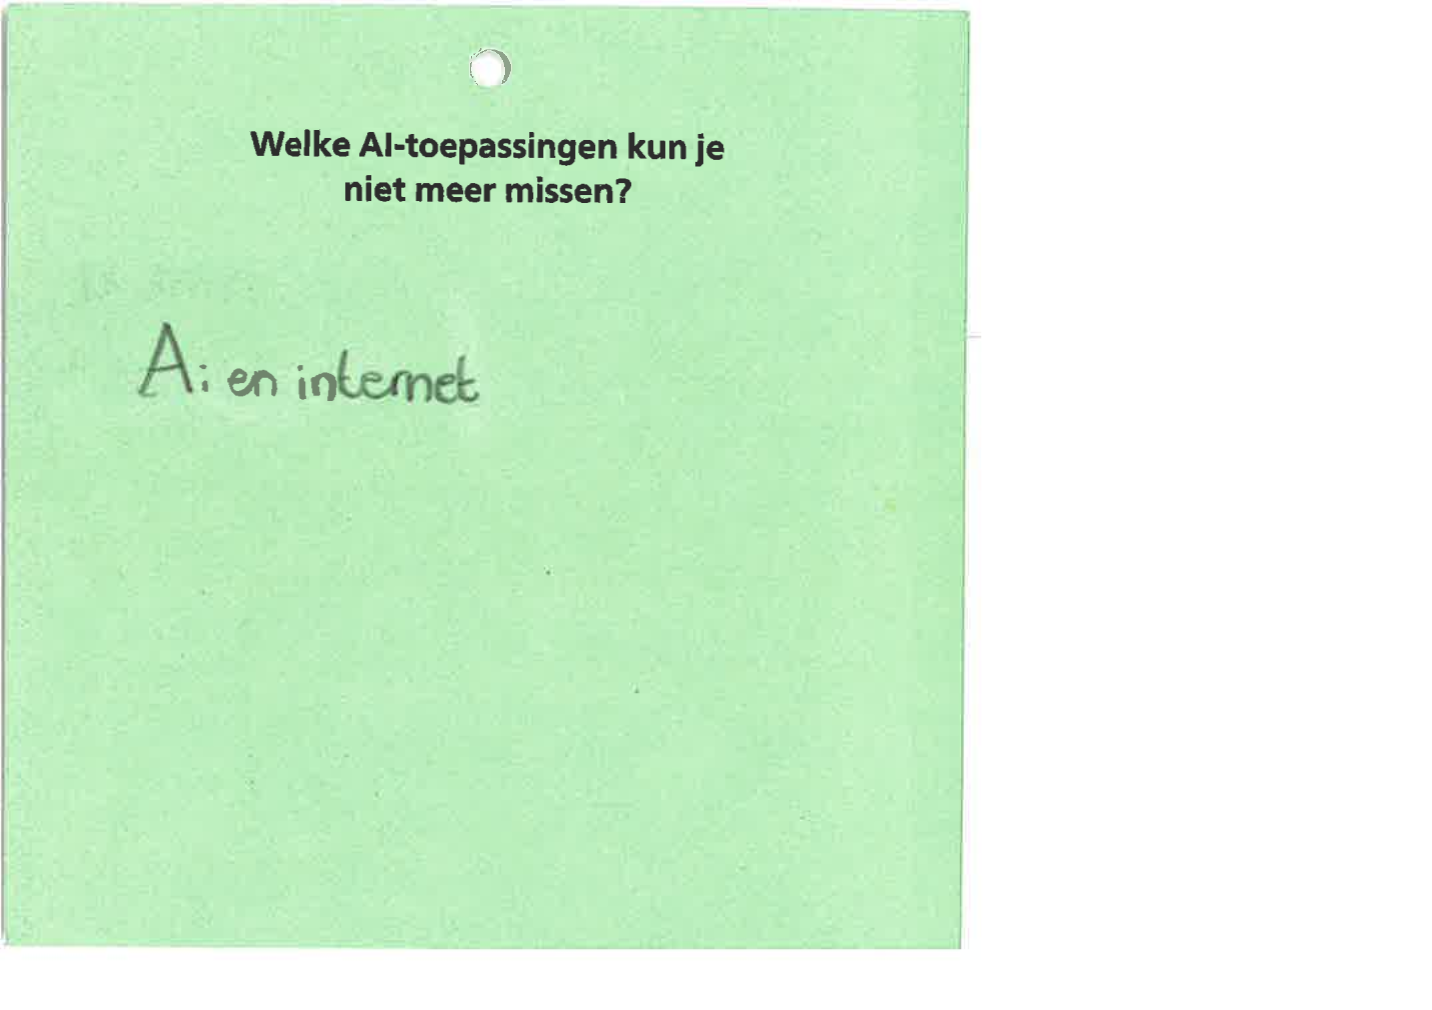 Welke AI-toepassingen kun je
niet meer missen?
Ai en internet